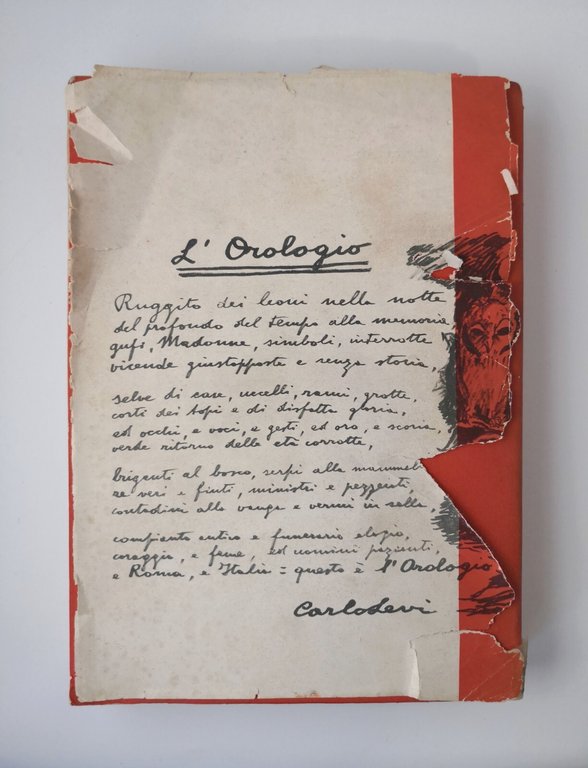 L' Orologio
Ruggito dei leoni nella notte
del profondo del tempo alla memoria,
gufi, Madonne, simboli, interrotte
vicende giustapposte e senza storia,
selve di case, uccelli, rami, grotte,
corti dei topi e di disfatta gloria,
ed occhi, e voci, e gesti, ed oro, e scoria,
verde ritorno delle età corrotte,
briganti al bosco, serpi alla mammel
re veri e finti, ministri e pezzenti,
contadini alla vanga e vermi in sella,
compianto antico e funerario elogio,
coraggio, e fame, ed uomini pazienti,
e Roma, e Italia = questo è l'Orologio
Carlo Levi